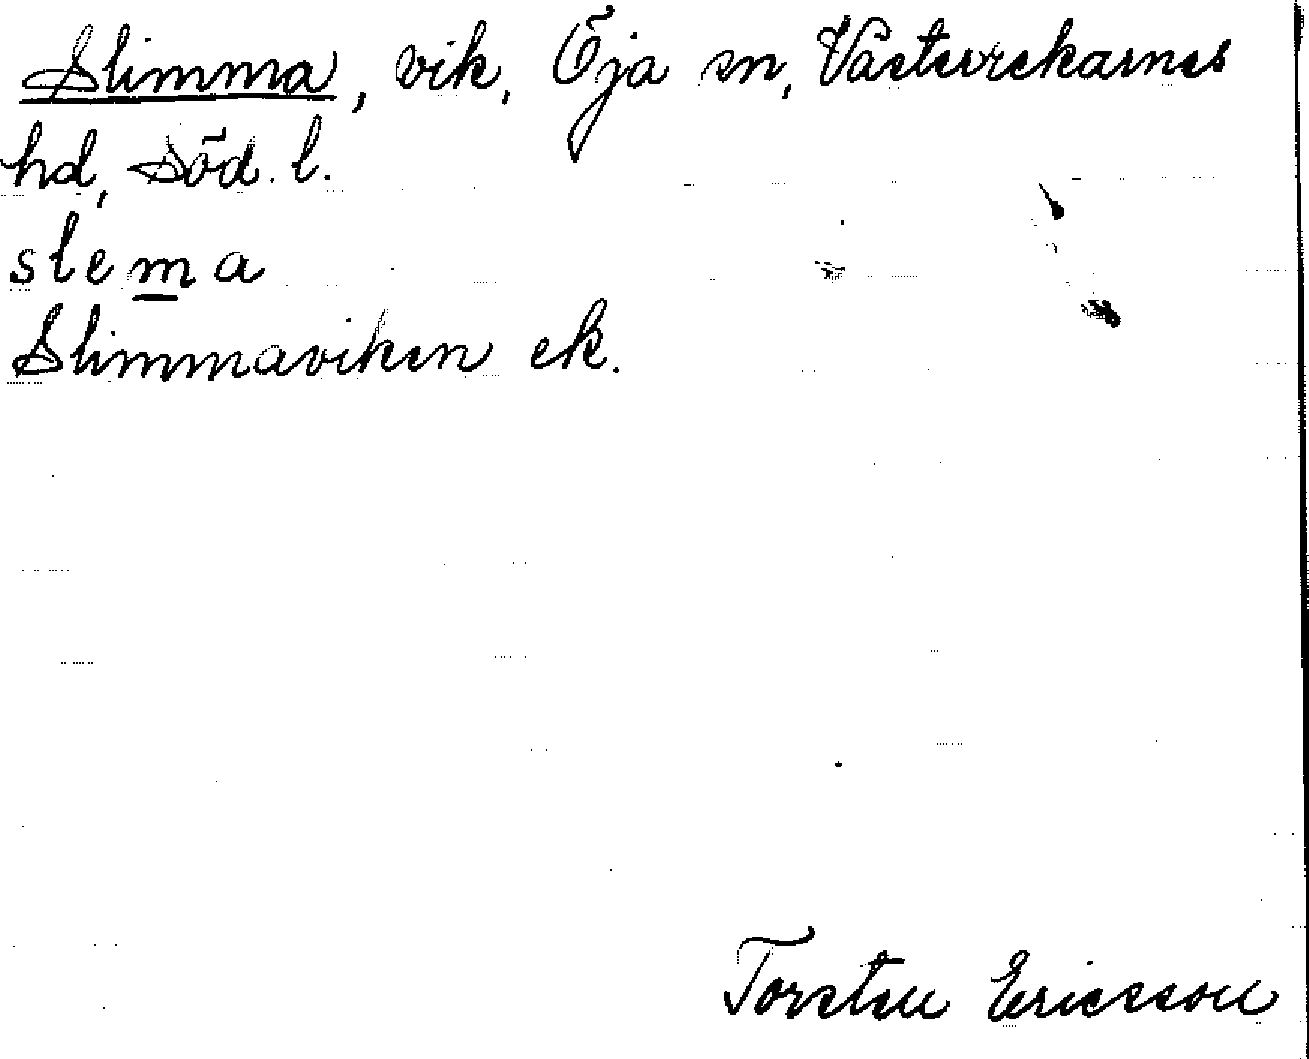 Slimma, vik, Öja sn, Västerrekarnes
hd, Söd. l.
slema
Slimmaviken ek.
Torsten Ericsson